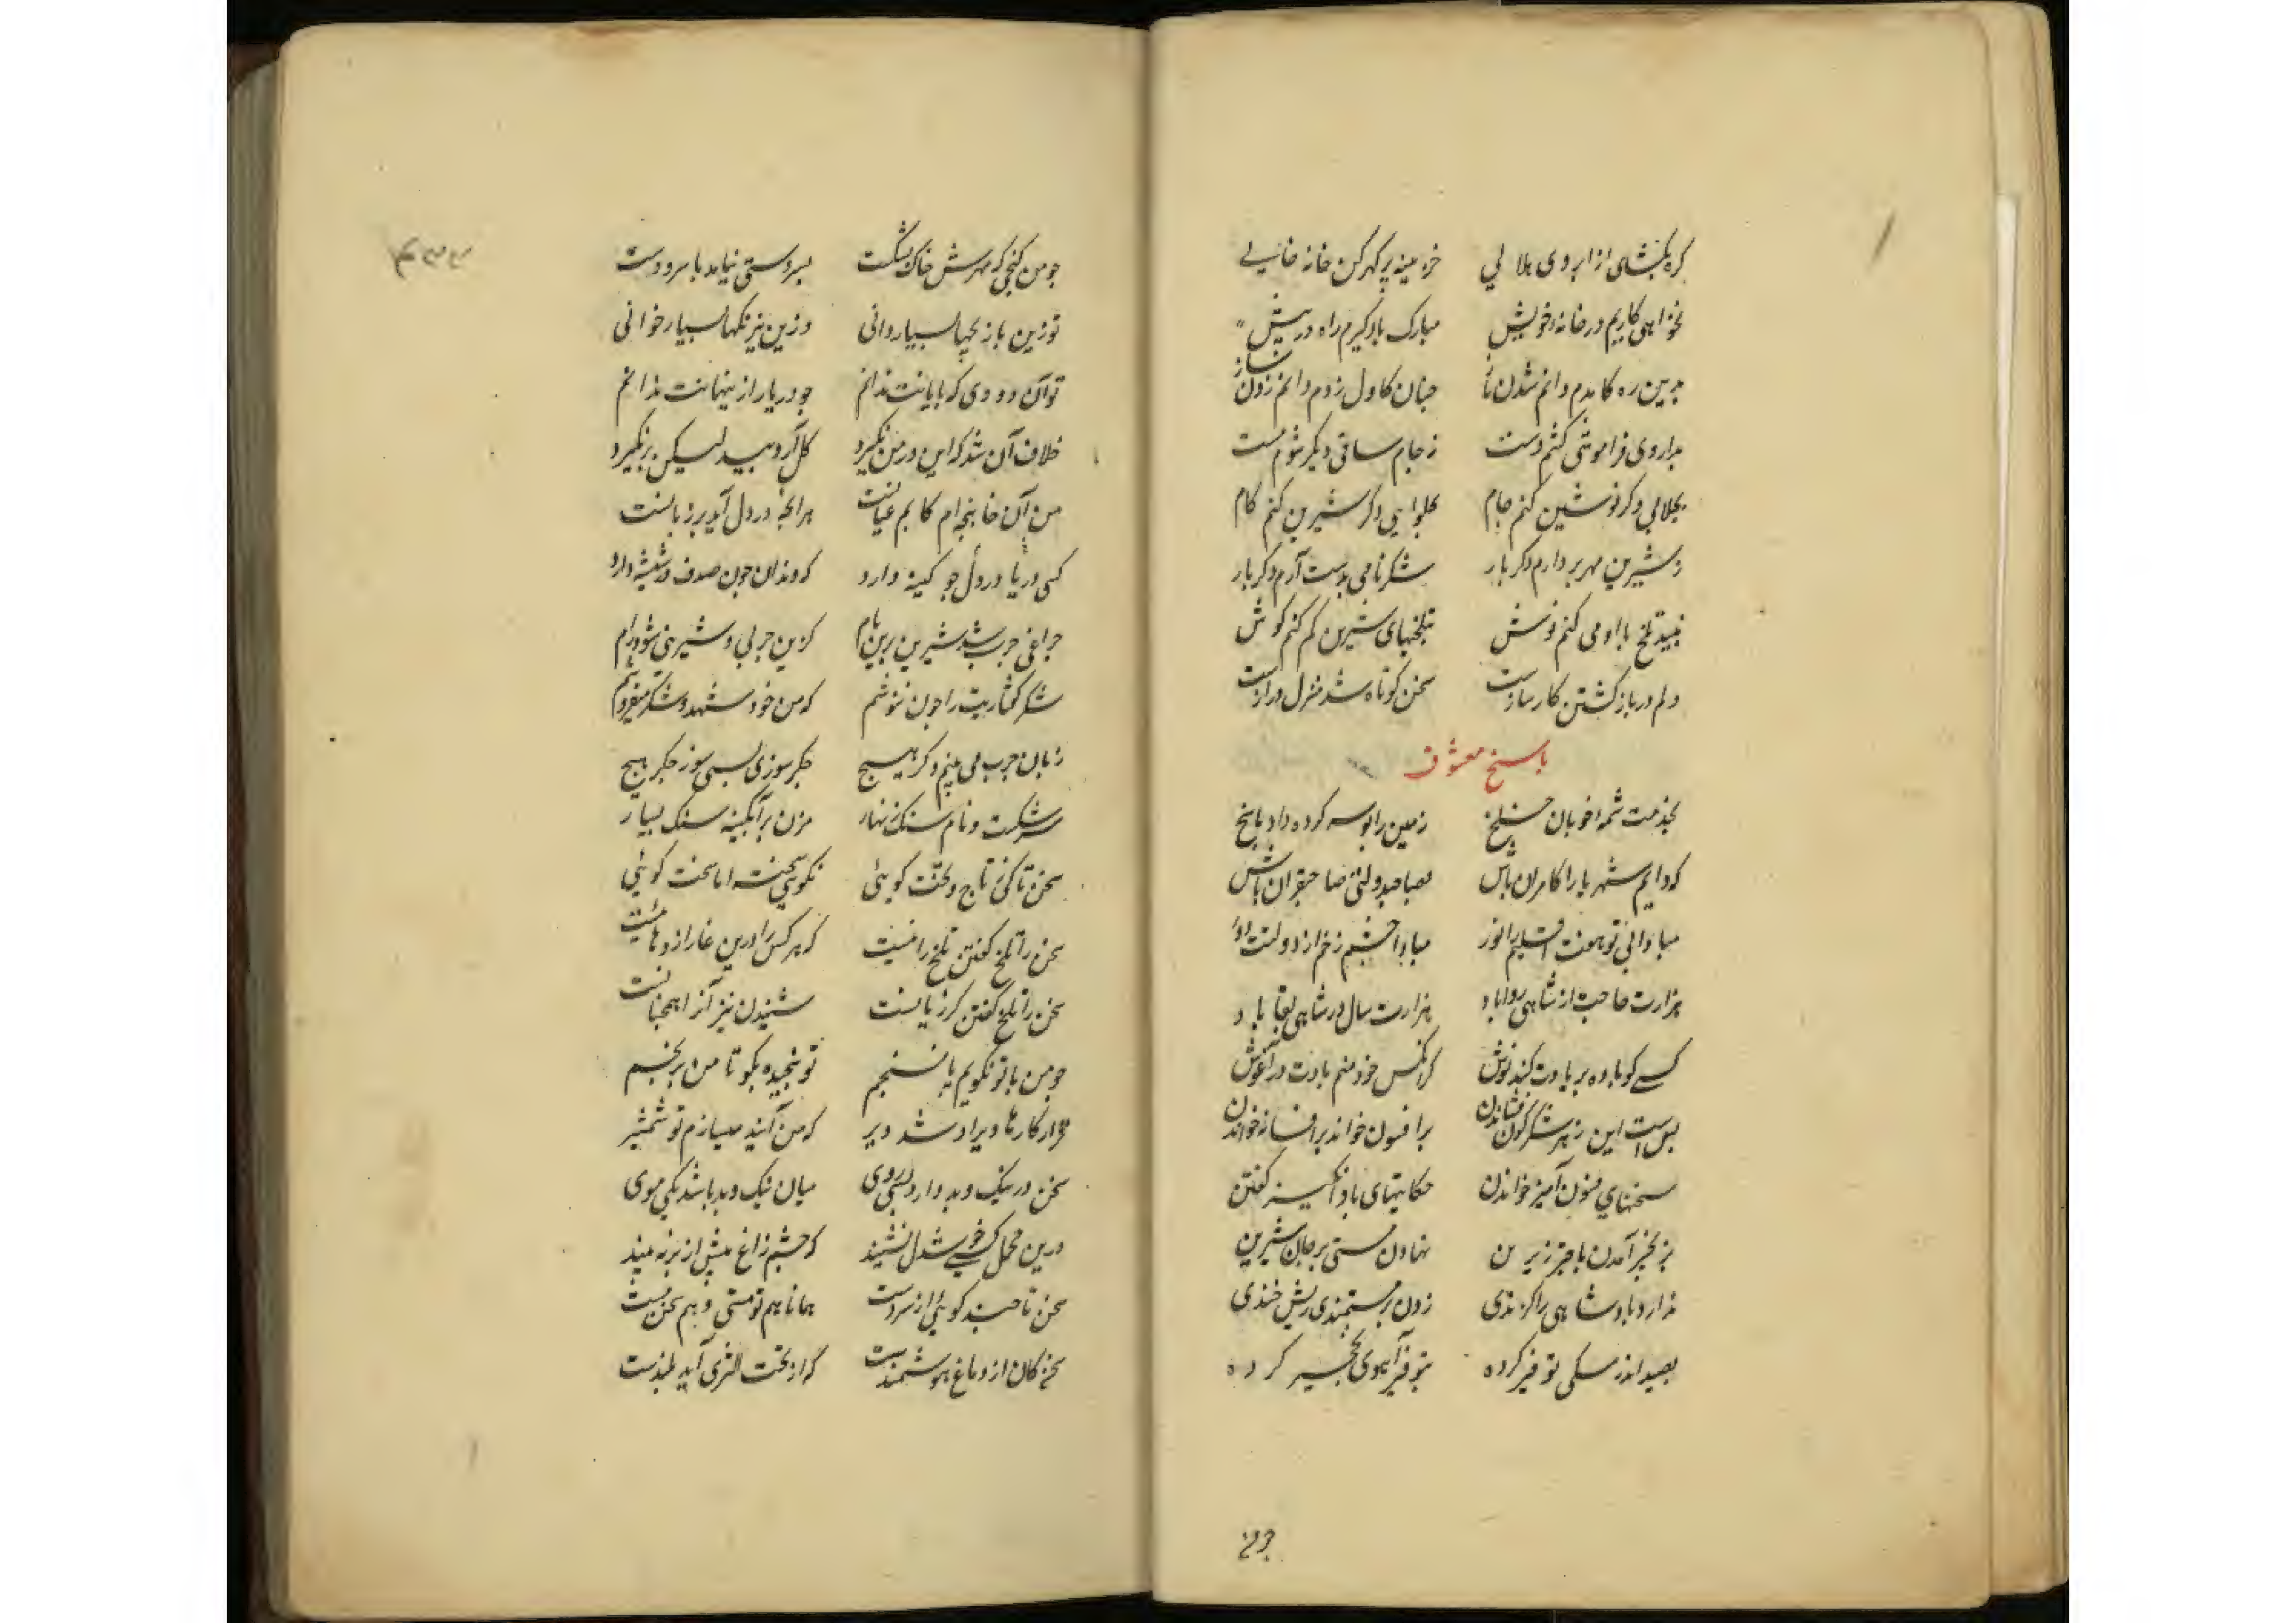 گره بگشای از ابروی هلالی خزینه پر گهر کن خانه خالی
نخواهی کاریم در خانه خویش مبارک باد گیرم راه در پیش
بدین ره کامدم دانم شدن باز چنان کاول زدم دانم زدن ساز
بداروی فراموشی کشم دست ز جام ساقی دیگر شوم مست
بجلابی دگر نوشین کنم جام بحلوایی دگر شیرین کنم کام
ز شیرین مهر بردارم دگر بار شکر نامی بدست آرم دگر بار
نبید تلخ با او می کنم نوش بتلخیهای شیرین کم کنم گوش
دلم در باز گشتن کار سازست سخن کوتاه شد منزل درازست
پاسخ معشوق
بخدمت شمه خوبان خلخ زمین را بوسه کرده داد پاسخ
که دایم شهریارا کامران باش بصاحب دولتی صاحبقران باش
مبادا بی تو هفت اقلیم را نور مبادا چشم زخم از دولتت دور
هزارت حاجت از شاهی روا باد هزارت سال در شاهی بقا باد
کسی کو باده بر یادت کند نوش گر آنکس خود منم بادت در آغوش
بس است این زهر شکرگون فشاندن بر افسون خوانده بر افسانه خواندن
سخنهای فسون آمیز خواندن حکایتهای باد انگیز گفتن
بنخجیر آمدن با چتر زرین نهادن منتی بر جان شیرین
ندارد پادشاهی را گزندی زدن بر مستمندی ریش خندی
بصید اندر سگی توفیر کرده بتوفیر آهوی نخجیر کرده
چو من
چو من گنجی که مهرش خاک نشکست بسردستی نیاید با سر دست
تو زین بازیچها بسیار دانی و زین نیرنگها بسیار خوانی
تو آن رودی که پایانت ندانم چو دریا راز پنهانت ندانم
خلاف آن شد که این در من نگیرد گل آرد بید لیکن بر نگیرد
من آن خانیچه ام کابم عیانست هر آنچه در دل آید بر زبانست
کسی دریا در دل چو کینه دارد که دندان چون صدف در شیشه دارد
چراغی چرب شد شیرین برین بام کزین چربی و شیرینی شود رام
شکر گفتاریت را چون نیوشم که من خود شهد و شکر میفروشم
زبان چرب می بینم دگر هیچ جگر سوزی بسی سوز جگر هیچ
سرشکست و نام سنگ زنهار مزن بر آبگینه سنگ بسیار
سخن تا کی ز تاج و تخت گویی نگویی سخته اما سخت گویی
سخن را تلخ گفتن تلخ رائیست که هر کس را درین غار اژدهائیست
سخن را تلخ گفتن گر زیانست شنیدن نیز آنرا همچنانست
چو من با تو نگویم یا نسنجم تو سنجیده بگو تا من برنجم
قرار کارها دیر اوفتد دیر که من آیینه میسازم تو شمشیر
سخن در نیک و بد دارد بسی روی میان نیک و بد باشد یکی موی
درین محمل کسی خوشدل نشیند که چشم زاغ پیش از پر نه بیند
سخن تا چند گویی از سر دست همانا هم تو مستی و هم سخن مست
سخن کان از دماغ هوشمندست گر از تحت الثری آید بلندست